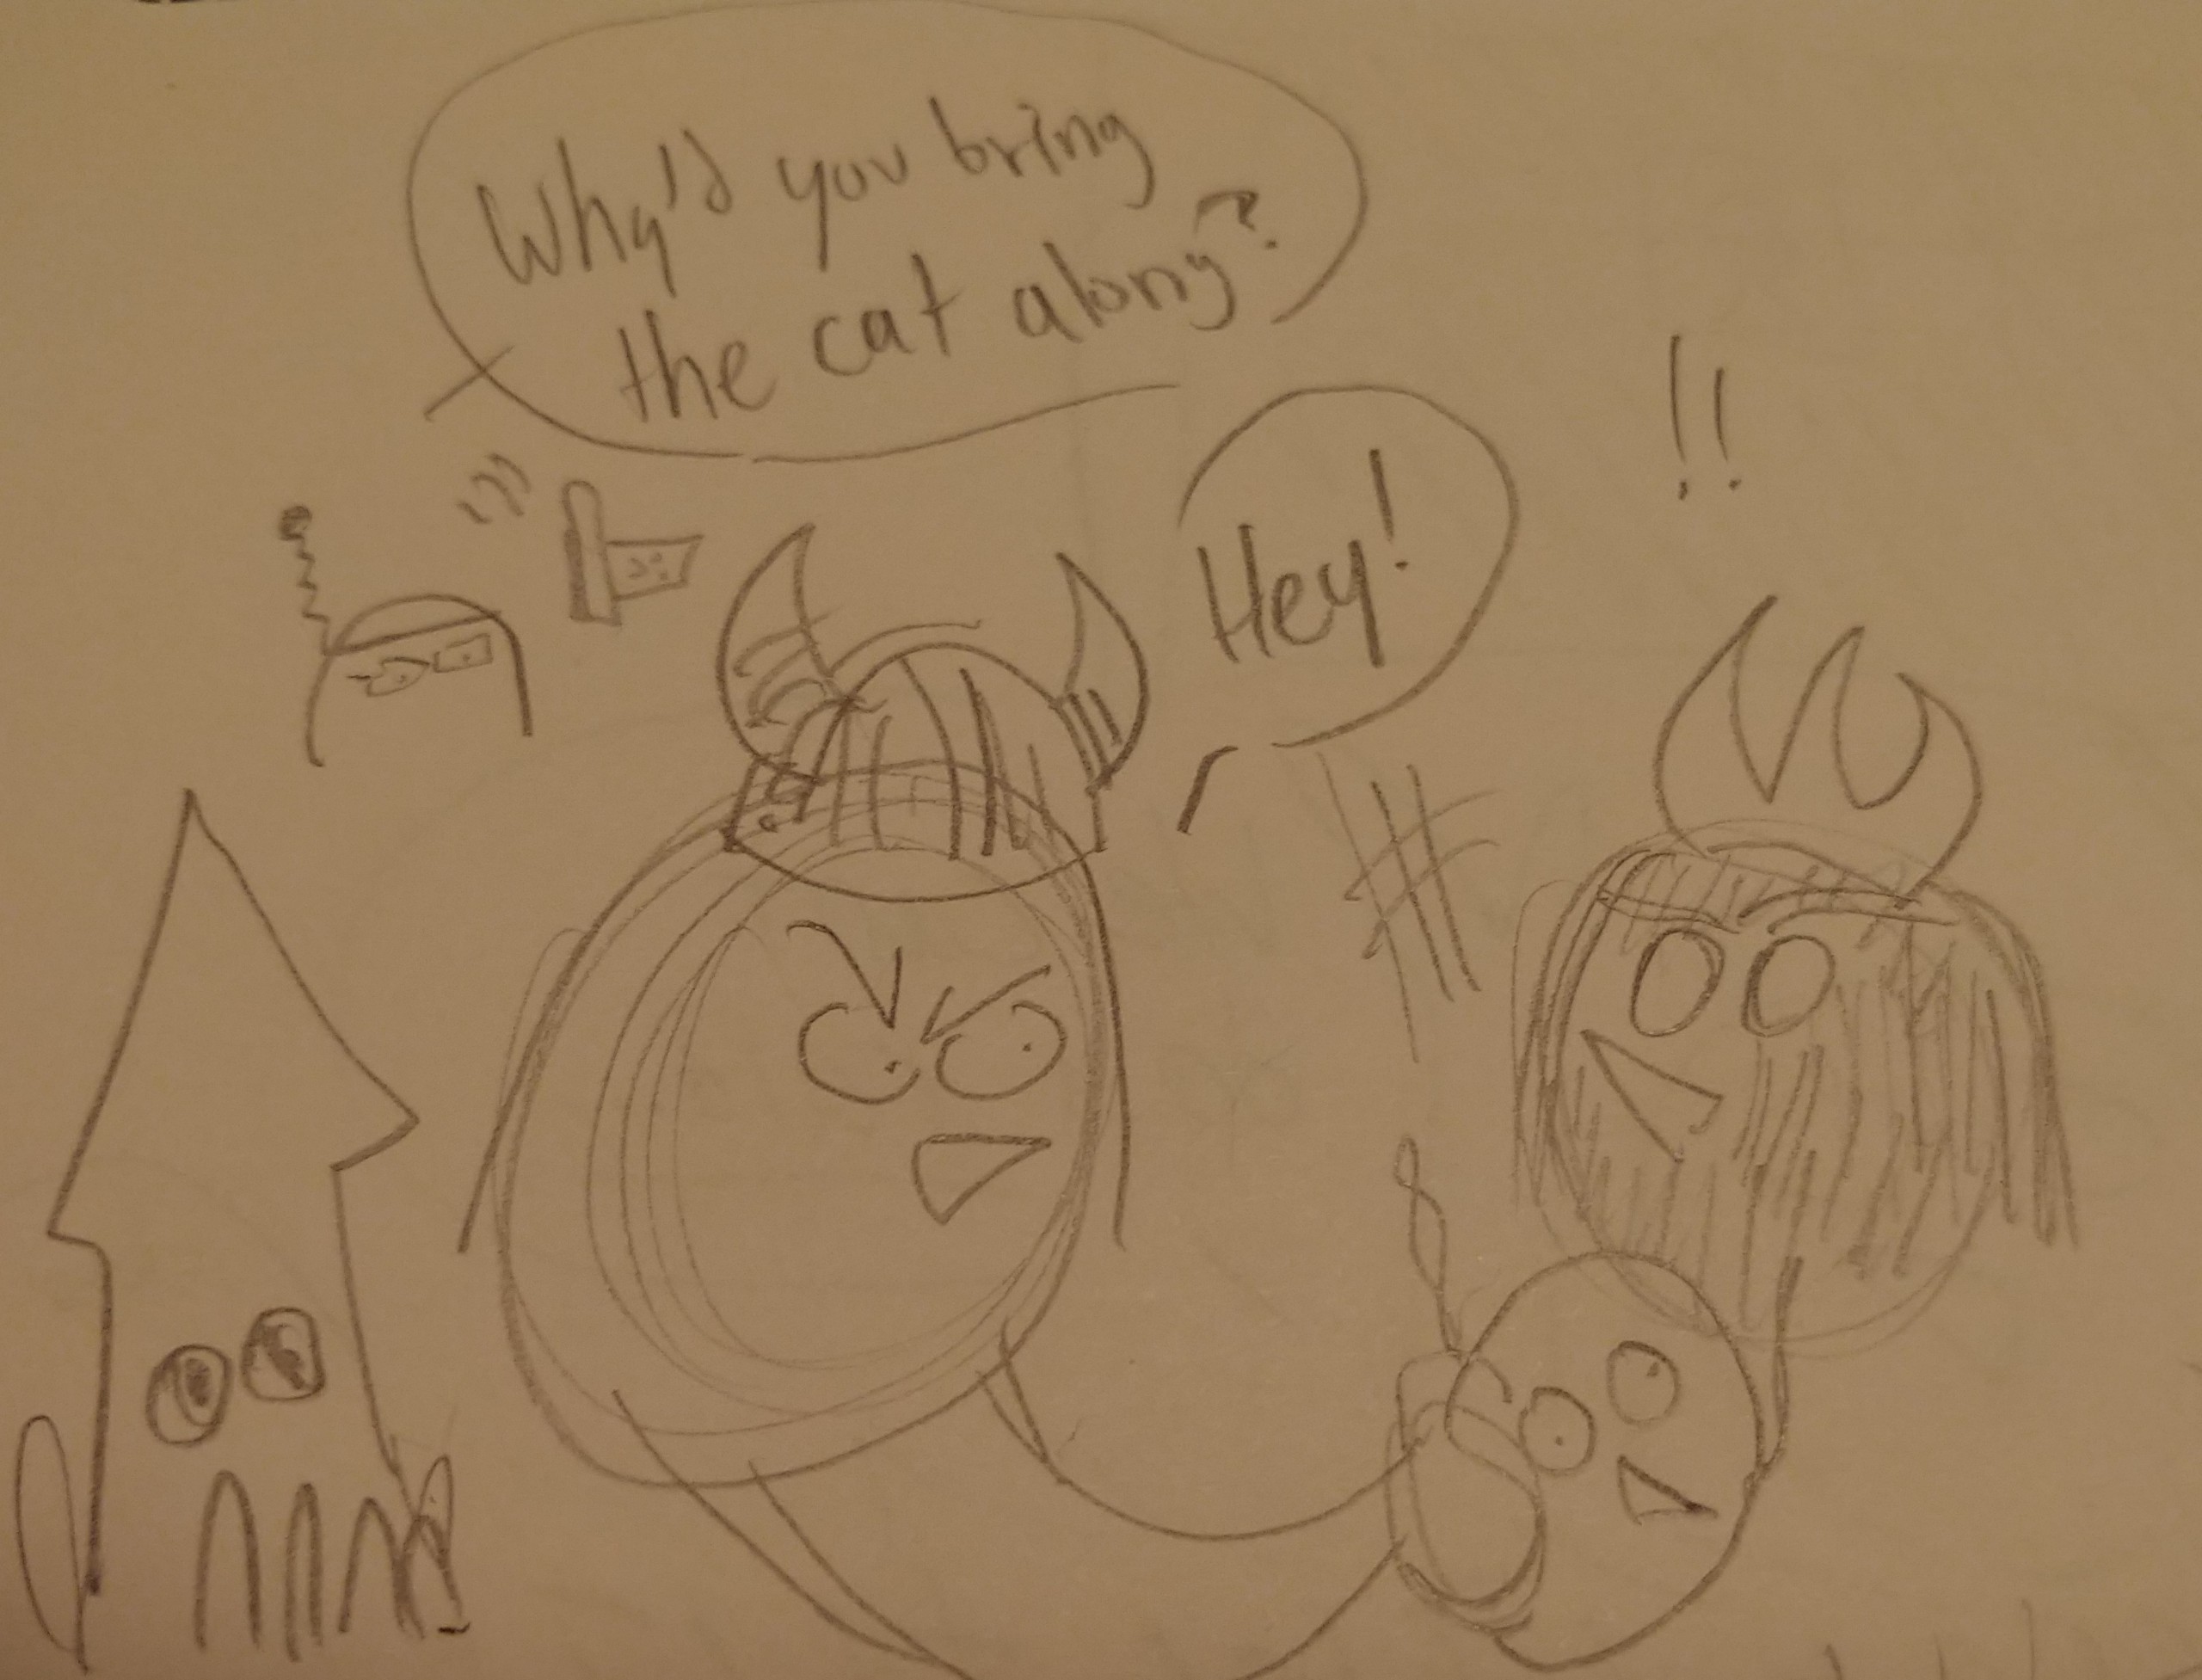 Why'd you bring
the cat along?
Hey!
!!